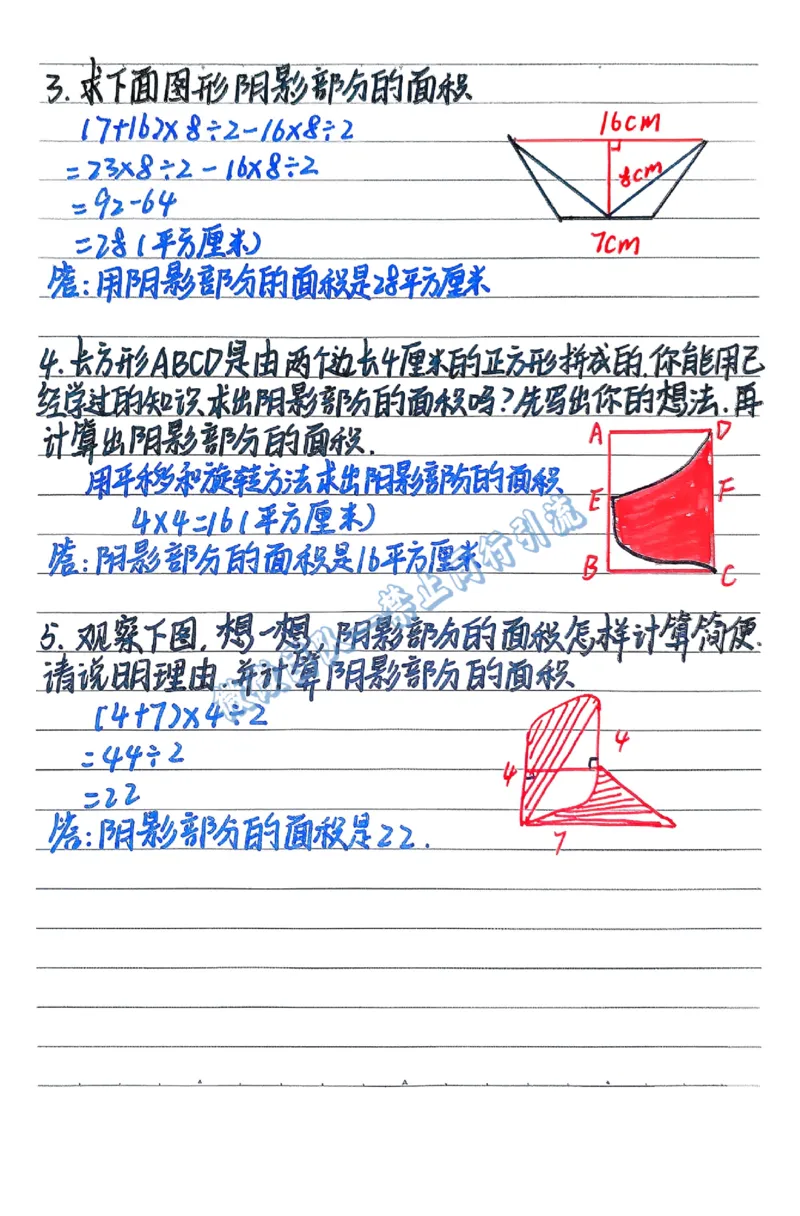 3. 求下面图形阴影部分的面积
(7+16)×8÷2-16×8÷2
=23×8÷2-16×8÷2
=92-64
=28(平方厘米)
答:用阴影部分的面积是28平方厘米
16cm
8cm
7cm
4. 长方形ABCD是由两个边长4厘米的正方形拼成的.你能用已
经学过的知识求出阴影部分的面积吗?先写出你的想法.再
计算出阴影部分的面积.
用平移和旋转方法求出阴影部分的面积
4×4=16(平方厘米)
答:阴影部分的面积是16平方厘米
A D
E F
B C
禁止同行引流
5. 观察下图,想一想,阴影部分的面积怎样计算简便.
请说明理由.并计算阴影部分的面积
(4+7)×4÷2
=44÷2
=22
答:阴影部分的面积是22.
4
4
7